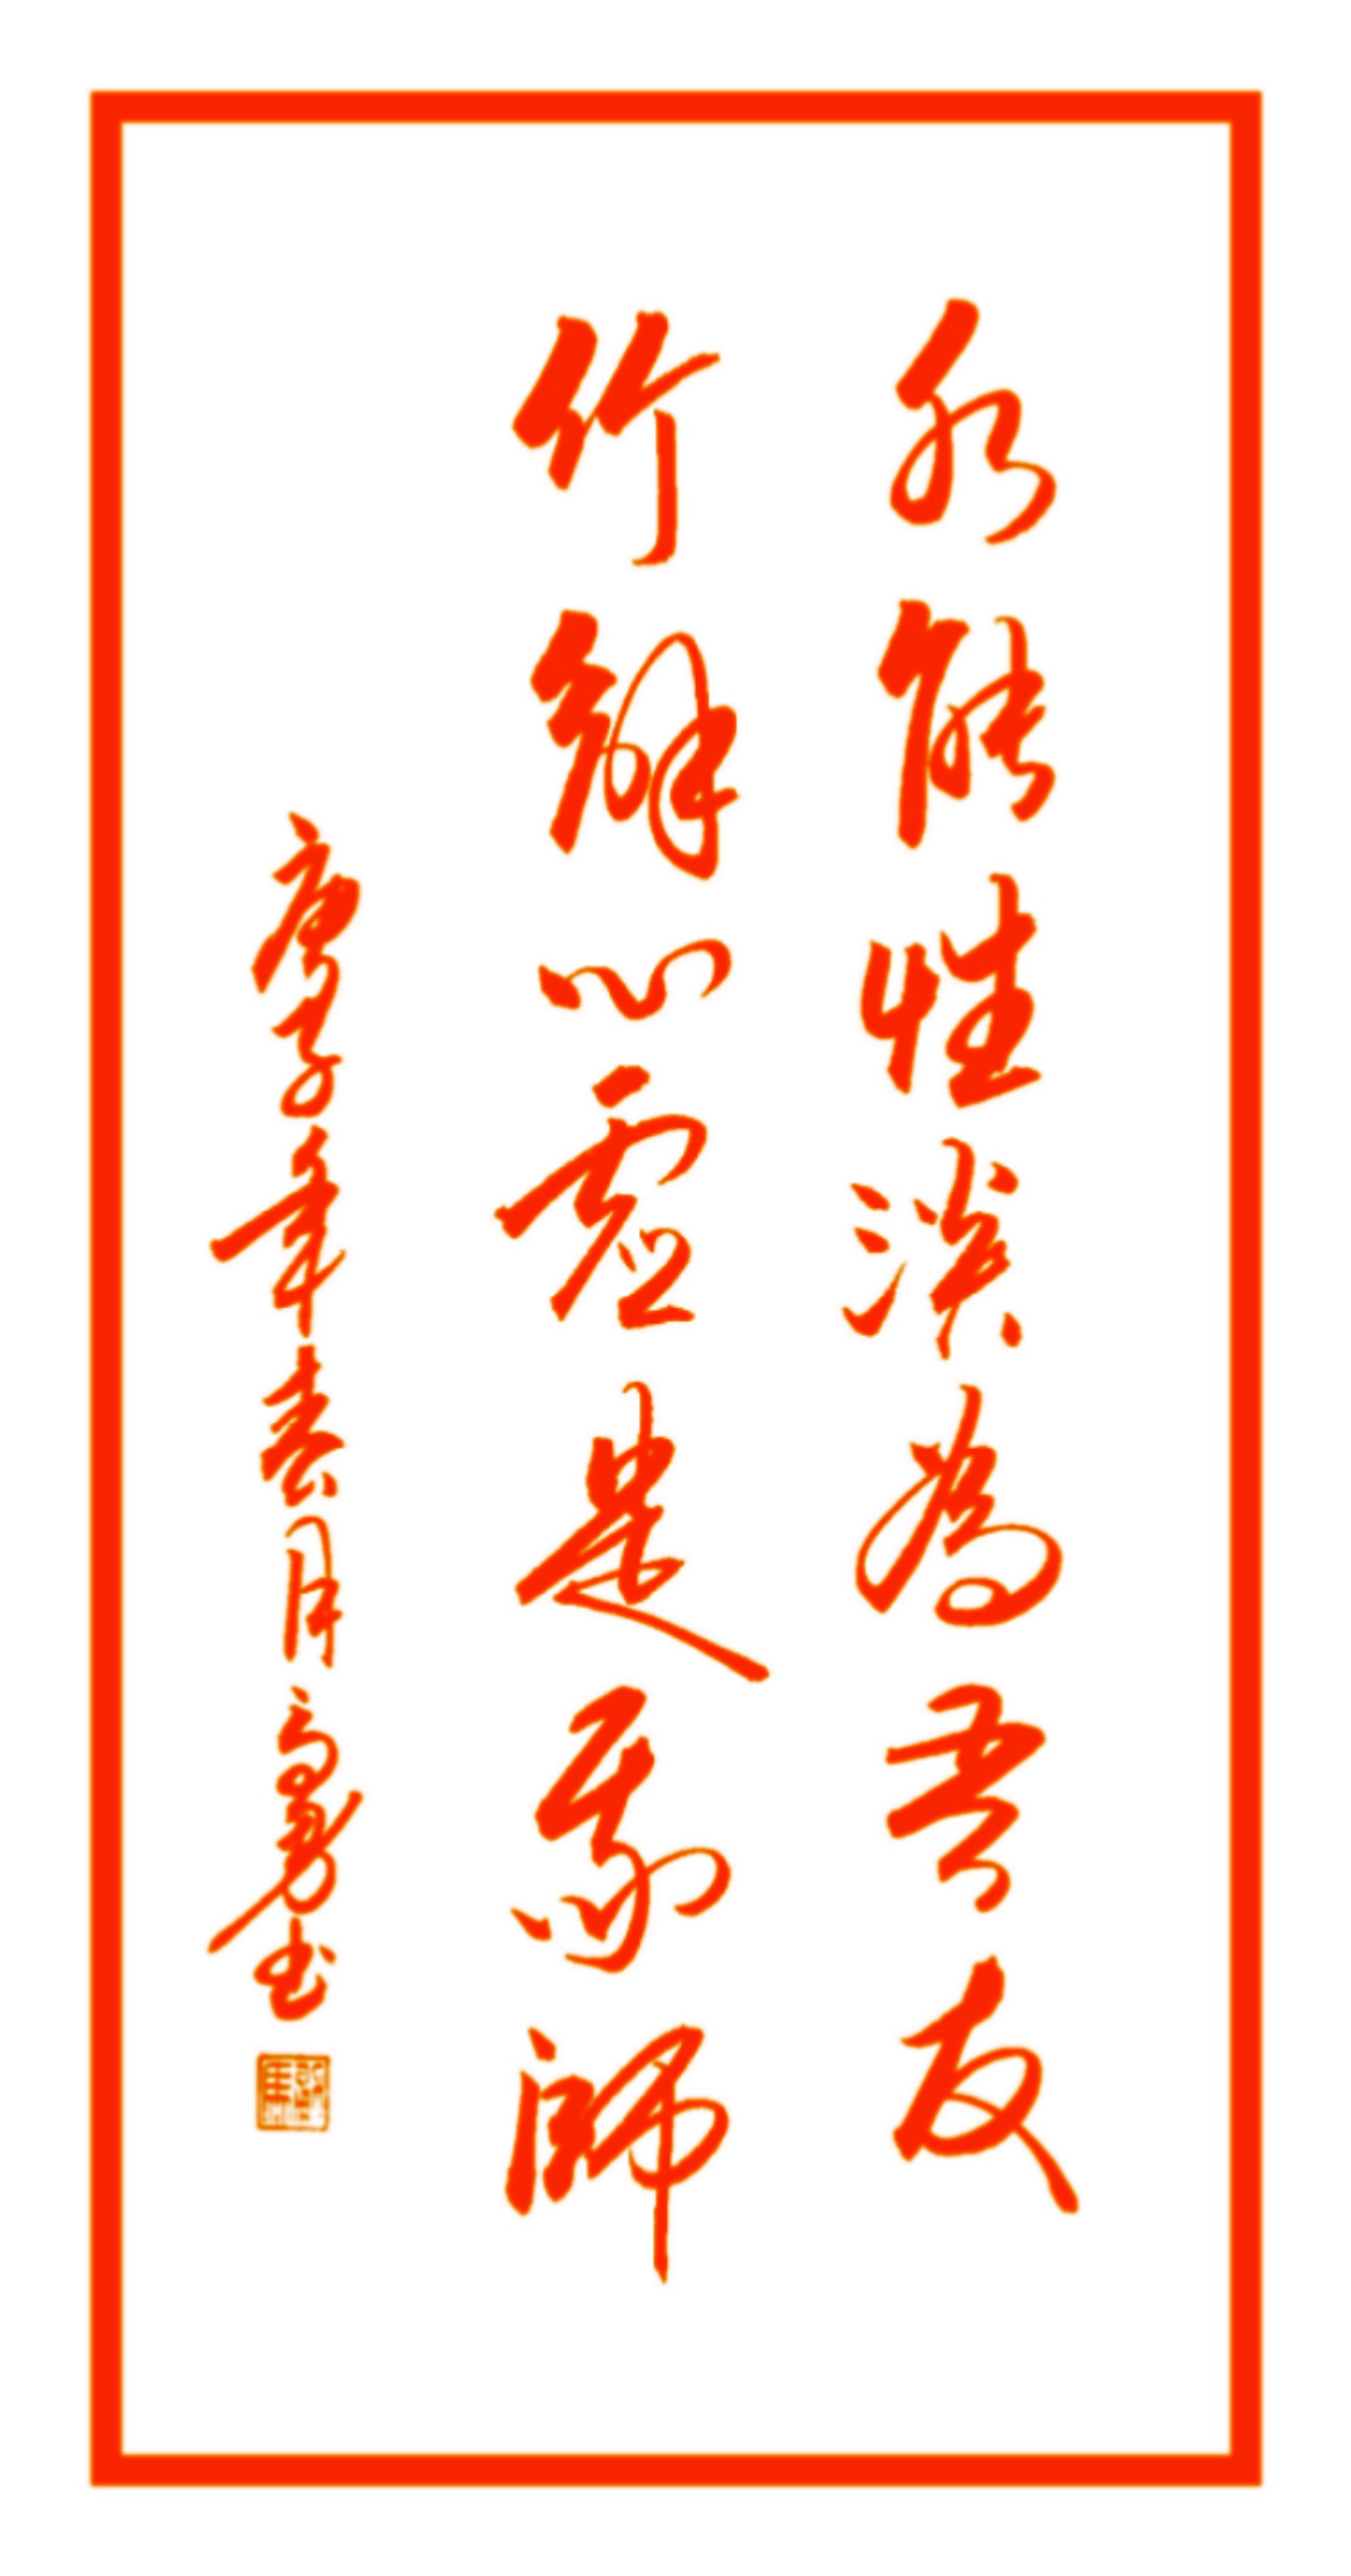 水能性淡為吾友
竹解心虛是我師
庚子年春月高勇書